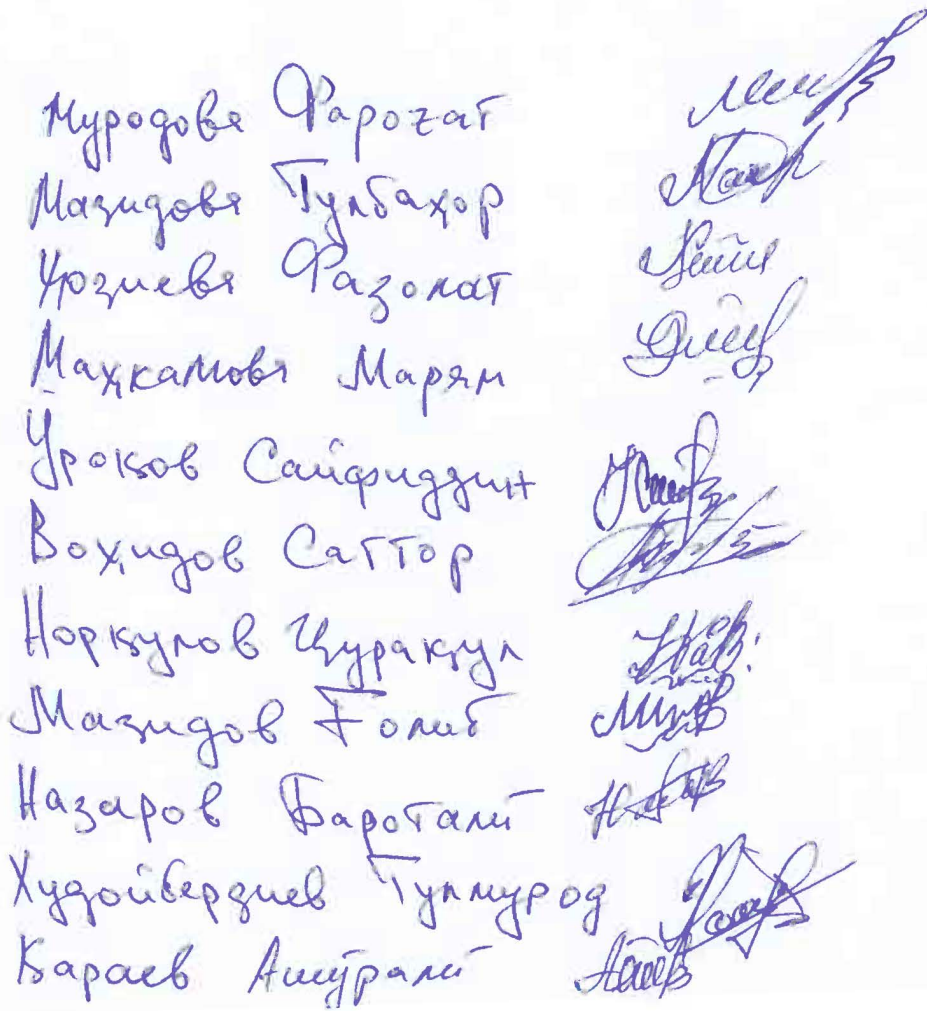 Муродова Фарогат
Мазидова Гулбаҳор
Ҳозиева Фазолат
Маҳкамова Марям
Ӯроқов Сайфиддин
Воҳидов Саттор
Норқулов Ҷӯрақул
Мазидов Ғолиб
Назаров Баротали
Худойбердиев Гулмурод
Қараев Ашӯрали